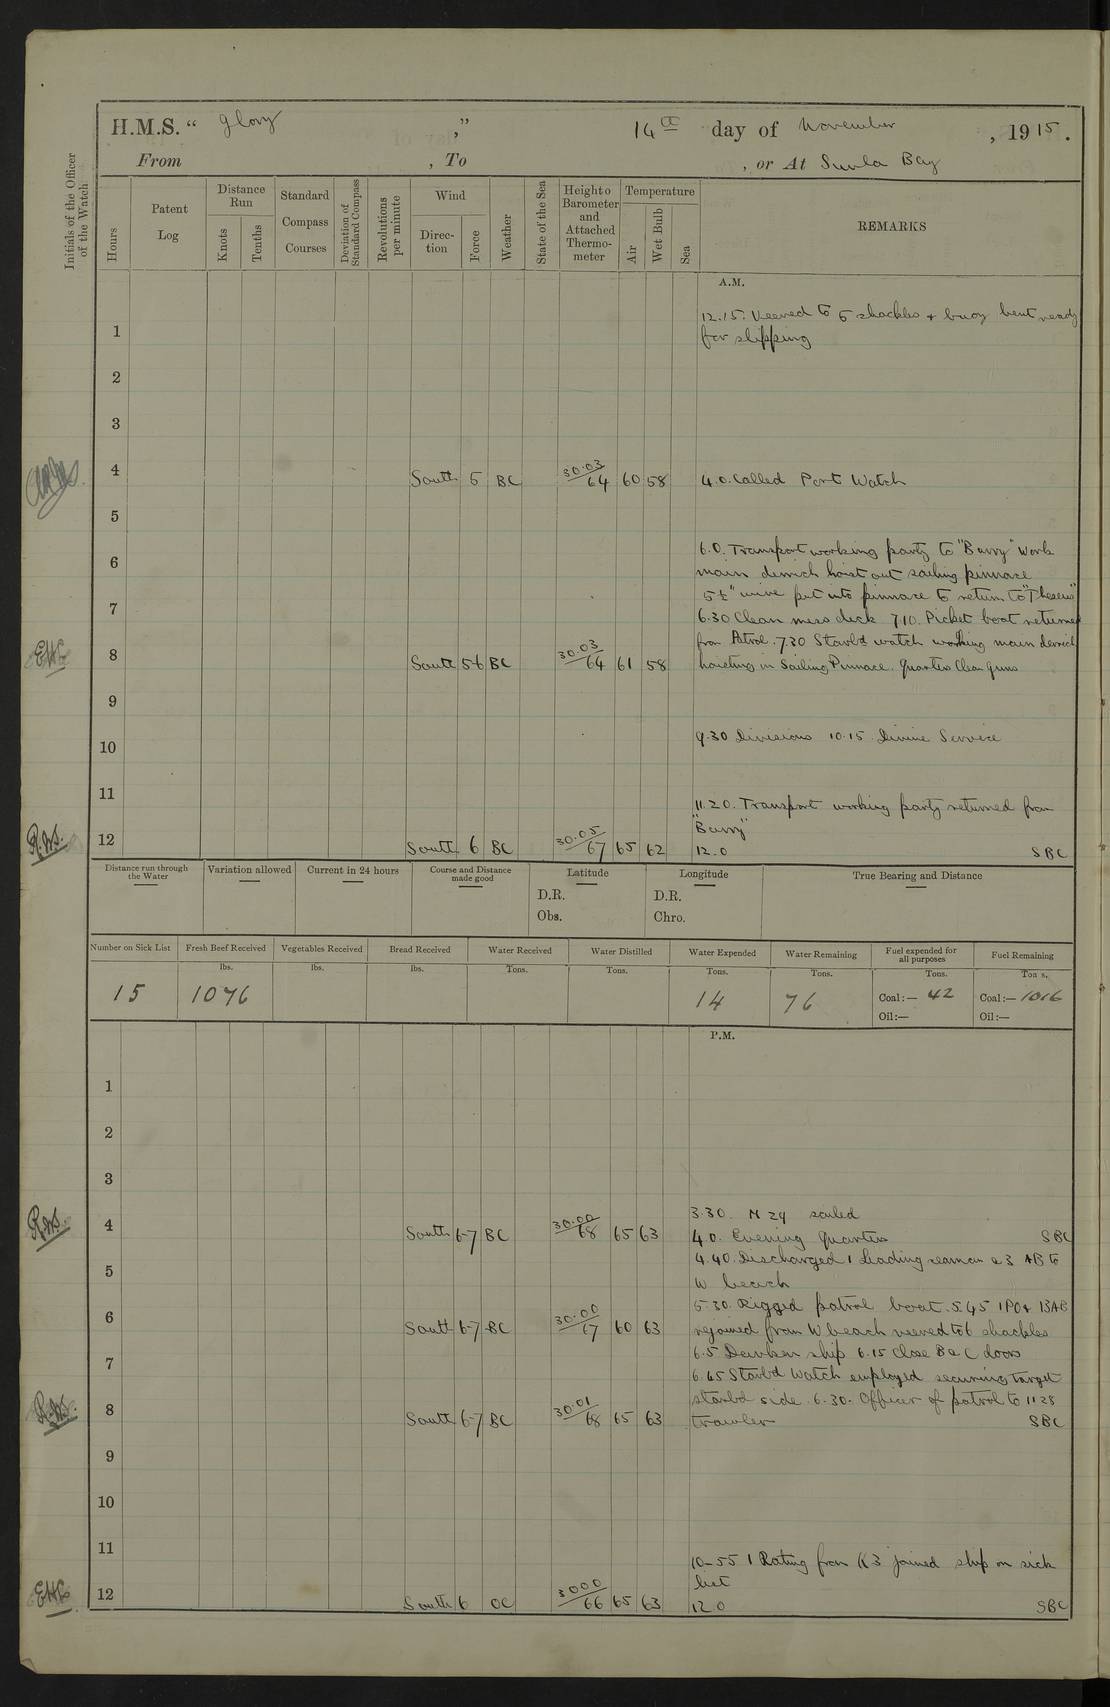 H.M.S. “ Glory ,” 14th day of November , 1915.
From , To , or At Suvla Bay
Initials of the Officer of the Watch
Hours
Patent Log
Distance Run
Knots
Tenths
Standard Compass Courses
Deviation of Standard Compass
Revolutions per minute
Wind
Direction
Force
Weather
State of the Sea
Height o Barometer and Attached Thermometer
Temperature
Air
Wet Bulb
Sea
REMARKS
A.M.
12.15. Veered to 5 shackles + buoy bent ready
1 for slipping
2
3
4 South 5 BC 30.03/64 60 58 4.0. Called Port Watch
5
6.0. Transport working party to "Barry" Work
6 main derrick hoist out sailing pinnace
5½" wire put into pinnace to return to "Theseus"
7 6.30 Clean mess deck 7.10. Picket boat returned
from Patrol. 7.30 Starbd watch working main derrick
8 South 5-6 BC 30.03/64 61 58 hoisting in Sailing Pinnace. Quarters Clean Guns
9
9.30 Divisions 10.15 Divine Service
10
11
11.20. Transport working party returned from
"Barry"
12 South 6 BC 30.05/67 65 62 12.0 SBC
Distance run through the Water
Variation allowed
Current in 24 hours
Course and Distance made good
Latitude
D.R.
Obs.
Longitude
D.R.
Chro.
True Bearing and Distance
Number on Sick List
Fresh Beef Received
Vegetables Received
Bread Received
Water Received
Water Distilled
Water Expended
Water Remaining
Fuel expended for all purposes
Fuel Remaining
lbs. lbs. lbs. Tons. Tons. Tons. Tons. Tons. Tons.
15 1076 14 76 Coal:— 42 Coal:— 1016
Oil:— Oil:—
P.M.
1
2
3
3.30. M 29 sailed
4 South 6-7 BC 30.00/68 65 63 4.0. Evening Quarters SBC
4.40. Discharged 1 Leading seaman & 3 AB to
5 W beach
5.30. Rigged patrol boat. 5.45 1 PO + 13AB
6 South 6-7 BC 30.00/67 60 63 rejoined from W beach veered to 6 shackles
6.5 Darken ship 6.15 Close B & C doors
7
6.45 Starbd Watch employed securing target
starbd side. 6.30. Officer of patrol to 1128
8 South 6-7 BC 30.01/68 65 63 trawler SBC
9
10
11
10-55 1 Rating from K3 joined ship on sick
list
12 South 6 OC 3000/66 65 63 12.0 SBC